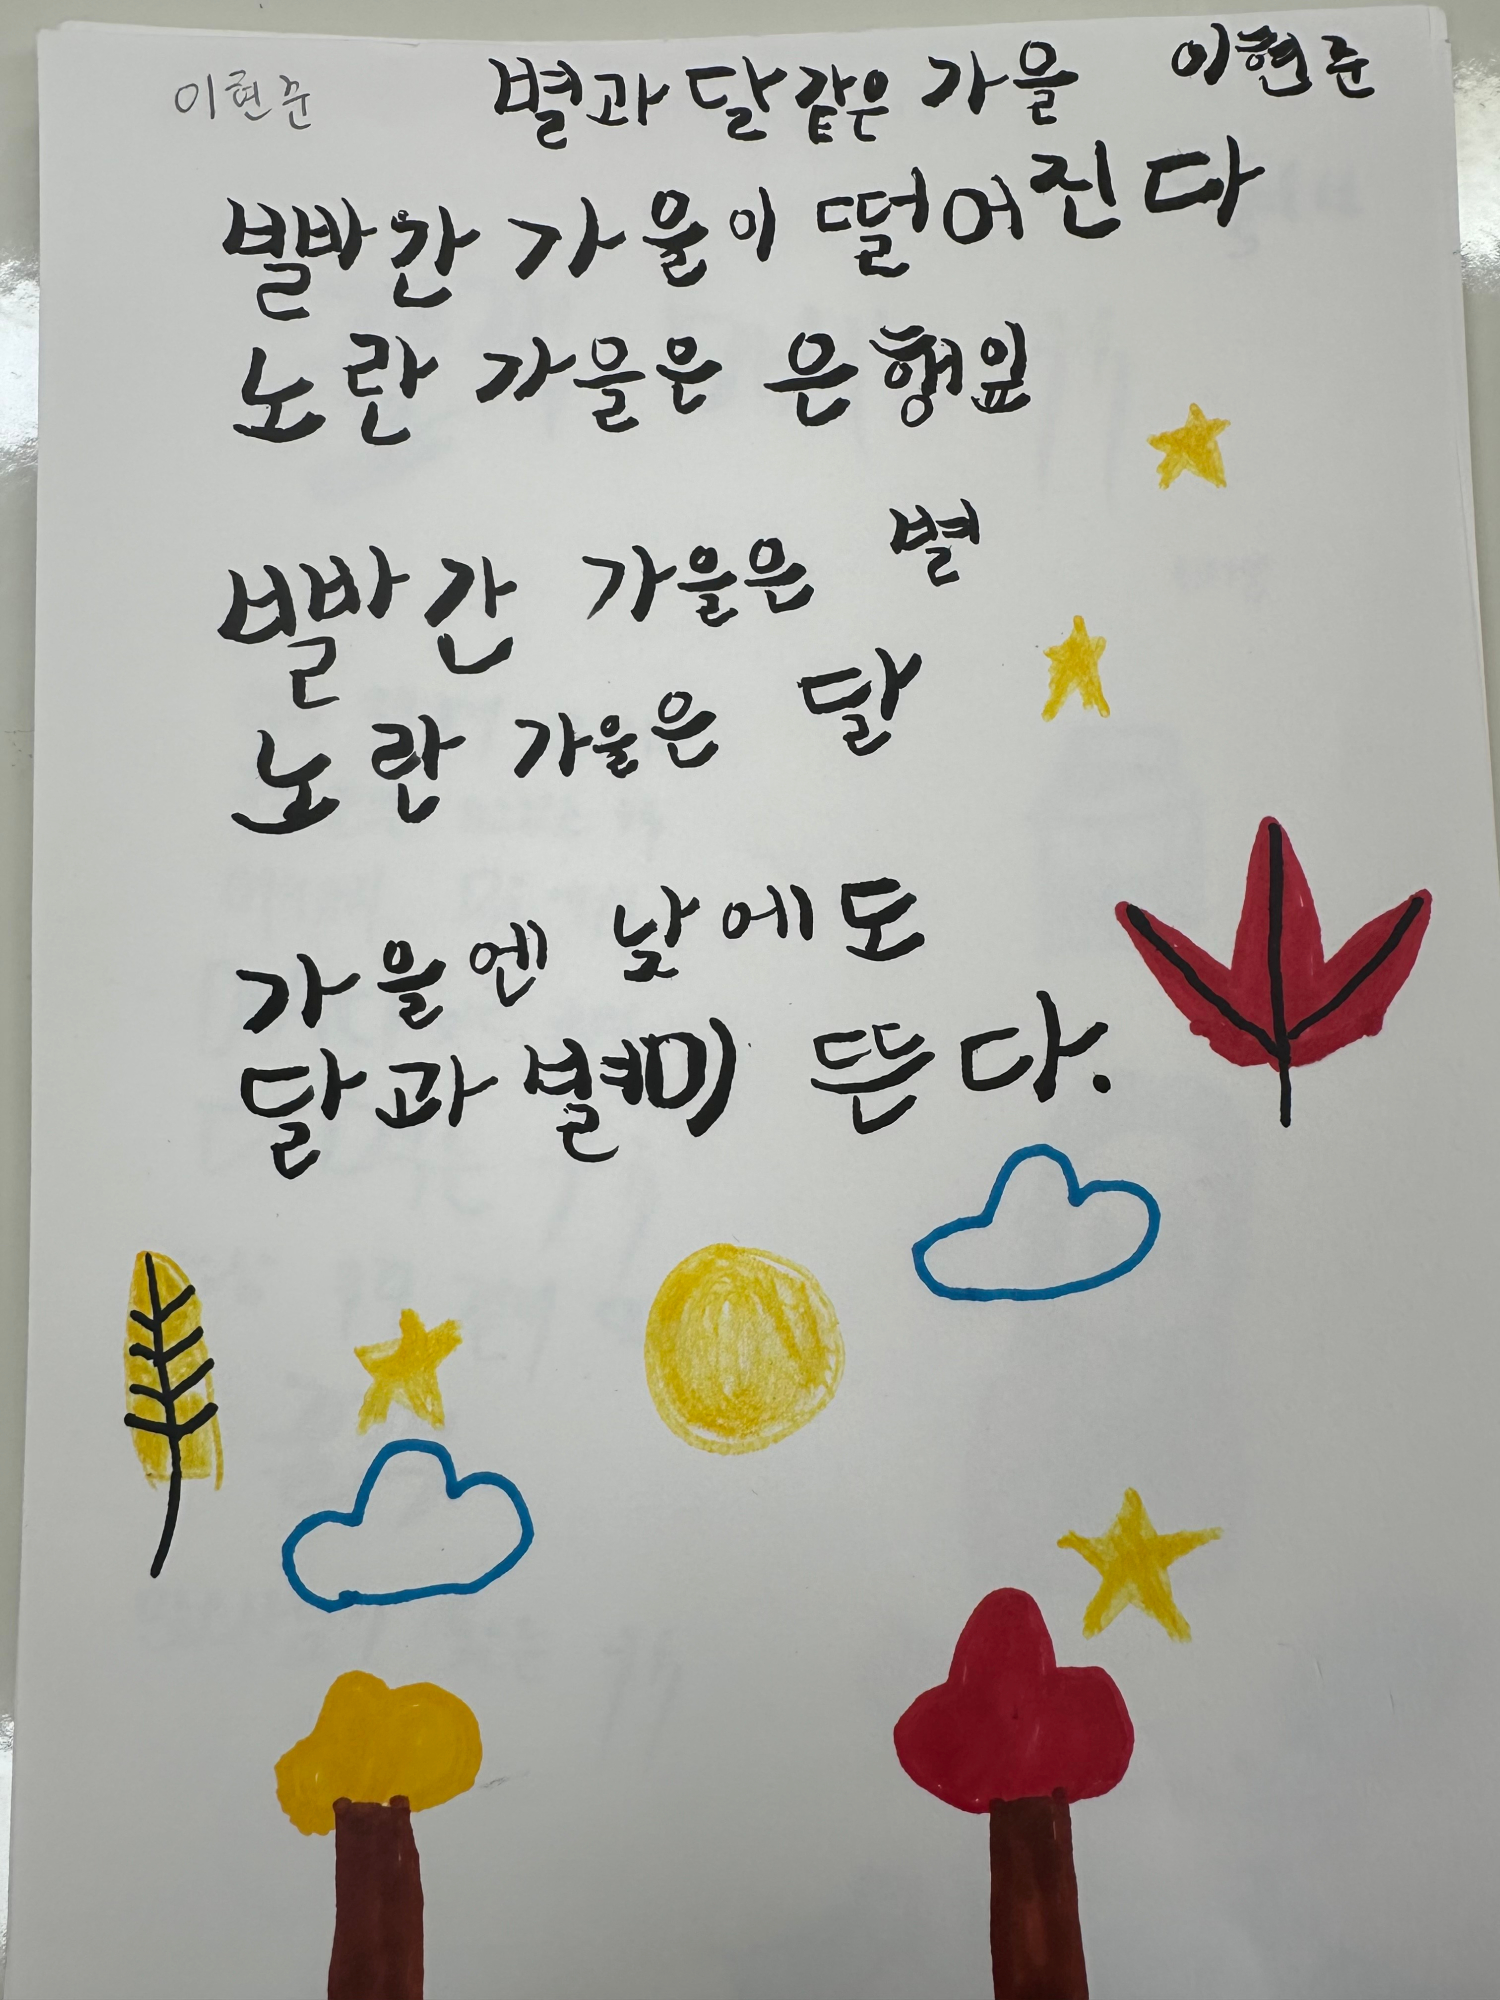 이현준 별과 달 같은 가을 이현준
빨빠간 가을이 떨어진다
노란 가을은 은행잎
빨빠간 가을은 별
노란 가을은 달
가을엔 낮에도
달과 별이 뜬다.